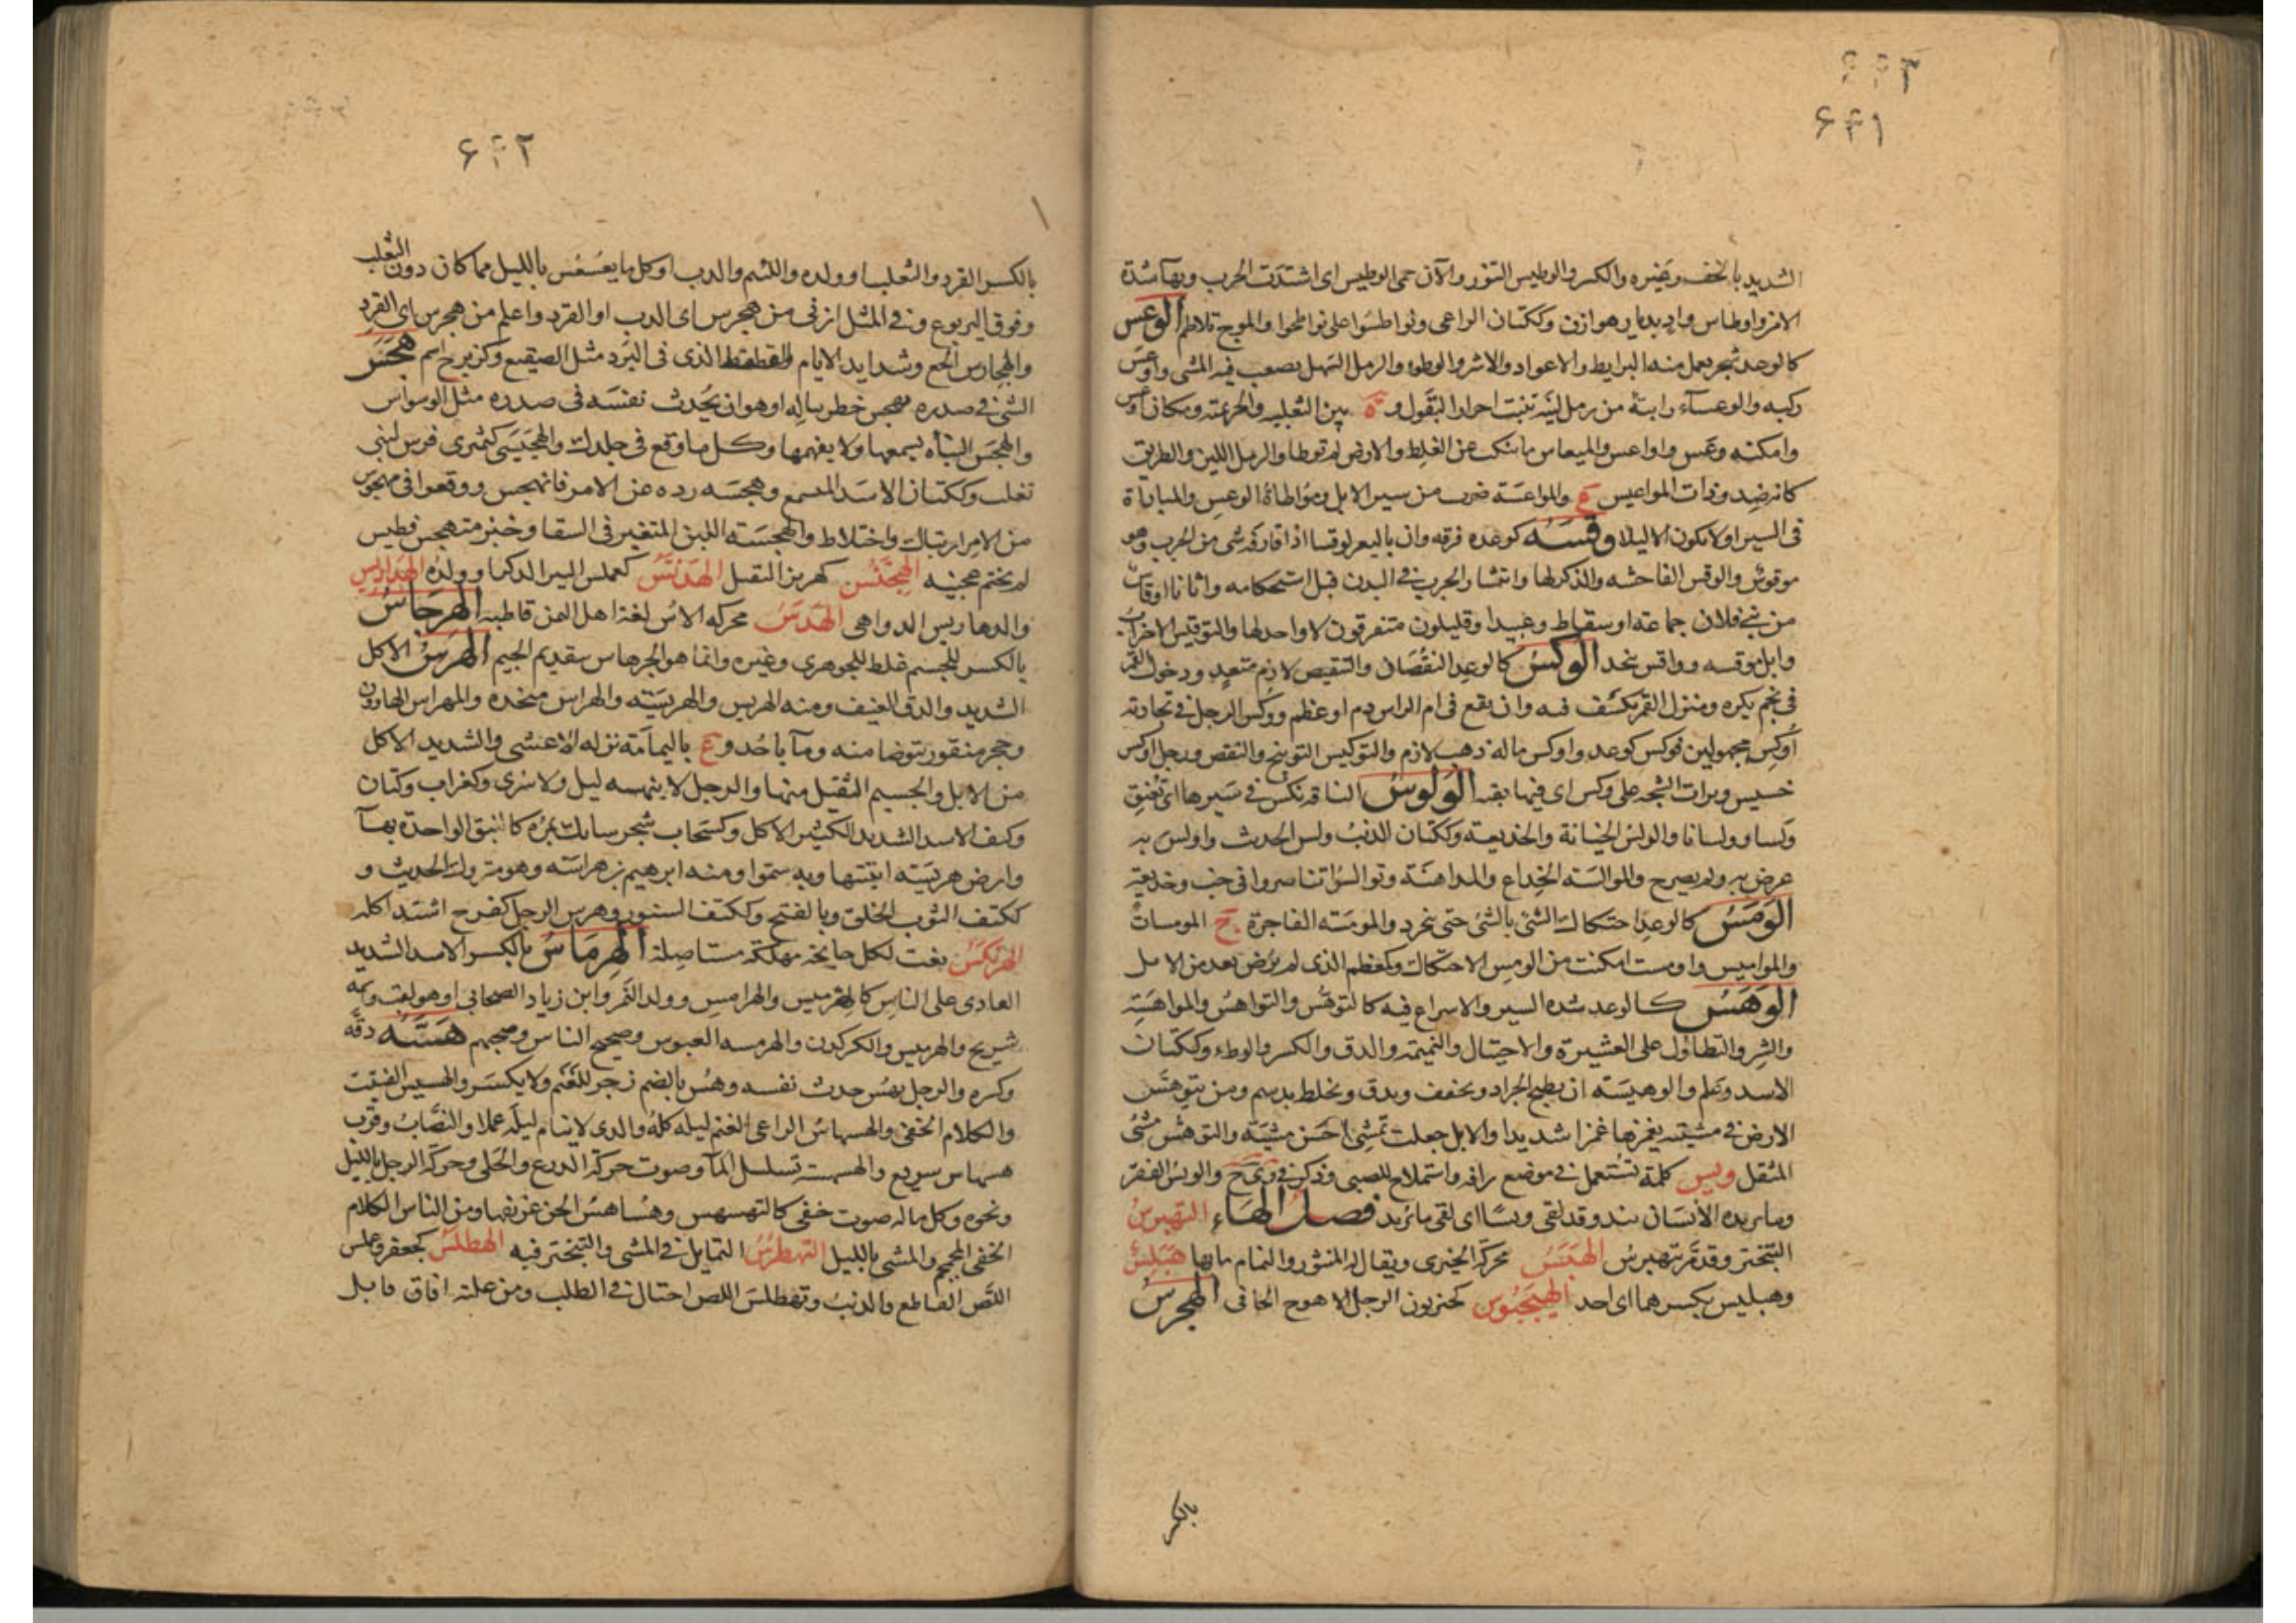 ۶۴۱
الشديد بالخف وغيره والكسر والوطيس التنور والآن حمى الوطيس اى اشتدت الحرب وبهاء شدة
الامر واوطاس واد بديار هوازن وككتان الراعى وتواطسوا على تواطحوا والموج تلاطم الوعس
كالوعد شجر يعمل منه البرابط والاعواد والاثر والوطوء والرمل السهل يصعب فيه المشى واوعس
ركبه والوعساء رابية من رمل لينة تنبت احرار البقول و ع بين الثعلبيه والخزيمة ومكان اوعس
وامكنه وعس واواعس والميعاس ما تنكب عن الغلظ والارض لم توطا والرمل اللين والطريق
كانه ضد وذات المواعيس ع والمواعسة ضرب من سير الابل ومواطاة الوعس والمباراة
فى السير او لا تكون الا ليلا وقسه كوعده قرفه وان بالبعير لوقسا اذا قارفه شى من الجرب وهو
موقوس والوقس الفاحشه والذكر لها وانتشار الجرب فى البدن قبل استحكامه واتانا اوقاس
من بنى فلان جماعة او سقاط وعبيد او قليلون متفرقون لا واحد لها والتوقيس الاجراب
وابل موقسه وواقس بنجد الوكس كالوعد النقصان والتنقيص لازم متعد ودخول القمر
فى نجم يكره ومنزل القمر يكسف فيه وان يقع فى ام الراس دم او عظم ووكس الرجل فى تجارته
اوكس مجهولين فوكس كوعد واوكس ماله ذهب لازم والتوكيس التوبيخ والنقص ورجل اوكس
خسيس وبرات الشجه على وكس اى فيها بقيه الولوس الناقه تلس فى سيرها اى تعنق
ولسا وولسانا والولس الخيانة والخديعة وككتان الذئب ولس الحديث واولس به
عرض به ولم يصرح والموالسه الخداع والمداهنة وتوالسوا تناصروا فى خب وخديعة
الومس كالوعد احتكاك الشئ بالشئ حتى ينجرد والمومسه الفاجرة ج المومسات
والمواميس واومست امكنت من الومس الاحتكاك وكمعظم الذى لم يرض بعد من الابل
الوهس كالوعد شده السير والاسراع فيه كالتوهس والتواهس والمواهسة
والشر والتطاول على العشيرة والاحتيال والنميمه والدق والكسر والوطء وككتان
الاسد وعلم والوهيسة ان يطبخ الجراد ويجفف ويدق ويخلط بدسم ومن يتوهس
الارض فى مشيته يغمزها غمزا شديدا والابل جعلت تمشى احسن مشية والتوهس مشى
المثقل ويس كلمة تستعمل فى موضع رافه واستملاح للصبى وذكر فى ويح والويس الفقر
وما يريده الانسان ضد وقد لقى ويسا اى لقى ما يريد فصل الهاء التهبرس
التبختر وقد مر يتهبرس الهبس محركة الخيرى ويقال له المنثور والنمام ما بها هبلس
وهبليس بكسرهما اى احد الهيجبوس كحيزبون الرجل الاهوج الجافى الهجرس
بالكسر
۶۴۲
بالكسر القرد والثعلب او ولده واللئيم والدب او كل ما يعسعس بالليل مما كان دون الثعلب
وفوق اليربوع وفى المثل ازنى من هجرس اى الدب او القرد واغلم من هجرس اى القرد
والهجارس الجمع وشدايد الايام والقطقط الذى فى البرد مثل الصقيع وكزبرج اسم هجس
الشئ فى صدره يهجس خطر بباله او هو ان يحدث نفسه فى صدره مثل الوسواس
والهجس النباة يسمعها ولا يفهمها وكل ما وقع فى خلدك والهجيسى كنميرى فرس لبنى
تغلب وككتان الاسد المتسمع وهجسه رده عن الامر فانهجس ووقعوا فى مهجوس
من الامر ارتباك واختلاط والهجيسه اللبن المتغير فى السقا وخبز متهجس فطير
لم يختمر عجينه الهجنس كهزبر الثقيل الهدبس كعملس الببر الذكر او ولده الهداريس
والدهاريس الدواهى الهدس محركه الاس لغة اهل اليمن قاطبة الهرجاس
بالكسر للجسيم غلط للجوهرى وغيره وانما هو الجرهاس بتقديم الجيم الهرس الاكل
الشديد والدق العنيف ومنه الهريس والهريسة والهراس متخذه والمهراس الهاون
وحجر منقور يتوضا منه وماء باحد و ع باليمامة نزله الاعشى والشديد الاكل
من الابل والجسيم الثقيل منها والرجل لا يتهيبه ليل ولا سرى وكغراب وكتان
وكتف الاسد الشديد الكثير الاكل وكسحاب شجر شايك ثمره كالنبق الواحدة بهاء
وارض هريسة انبتتها وبه سموا ومنه ابرهيم بن هراسه وهو متروك الحديث و
ككتف الثوب الخلق وبالفتح وككتف السنور وهرس الرجل كفرح اشتد اكله
الهركس نعت لكل جايحة مهلكة مستاصلة الهرماس بالكسر الاسد الشديد
العادى على الناس كالهرميس والهرامس وولد النمر وابن زياد الصحابى او هو لقب واسمه
شريح والهرميس والكركدن والهرمسه العبوس وضجيج الناس وصخبهم هسه دقه
وكسره والرجل يهس حدث نفسه وهس بالضم زجر للغنم ولا يكسر والهسيس الفتيت
والكلام الخفى والهسهاس الراعى الغنم ليله كله والذى لا ينام ليله عملا والقصاب وقرب
هسهاس سريع والهسهسة تسلسل الماء وصوت حركة الدرع والحلى وحركة الرجل بالليل
ونحوه وكل ما له صوت خفى كالتهسهس وهساهس الجن عزيفها ومن الناس الكلام
الخفى المجمجم والمشى بالليل التهطرس التمايل فى المشى والتبختر فيه الهطلس كجعفر وعملس
اللص القاطع والذئب وتهطلس اللص احتال فى الطلب ومن علته افاق وابل